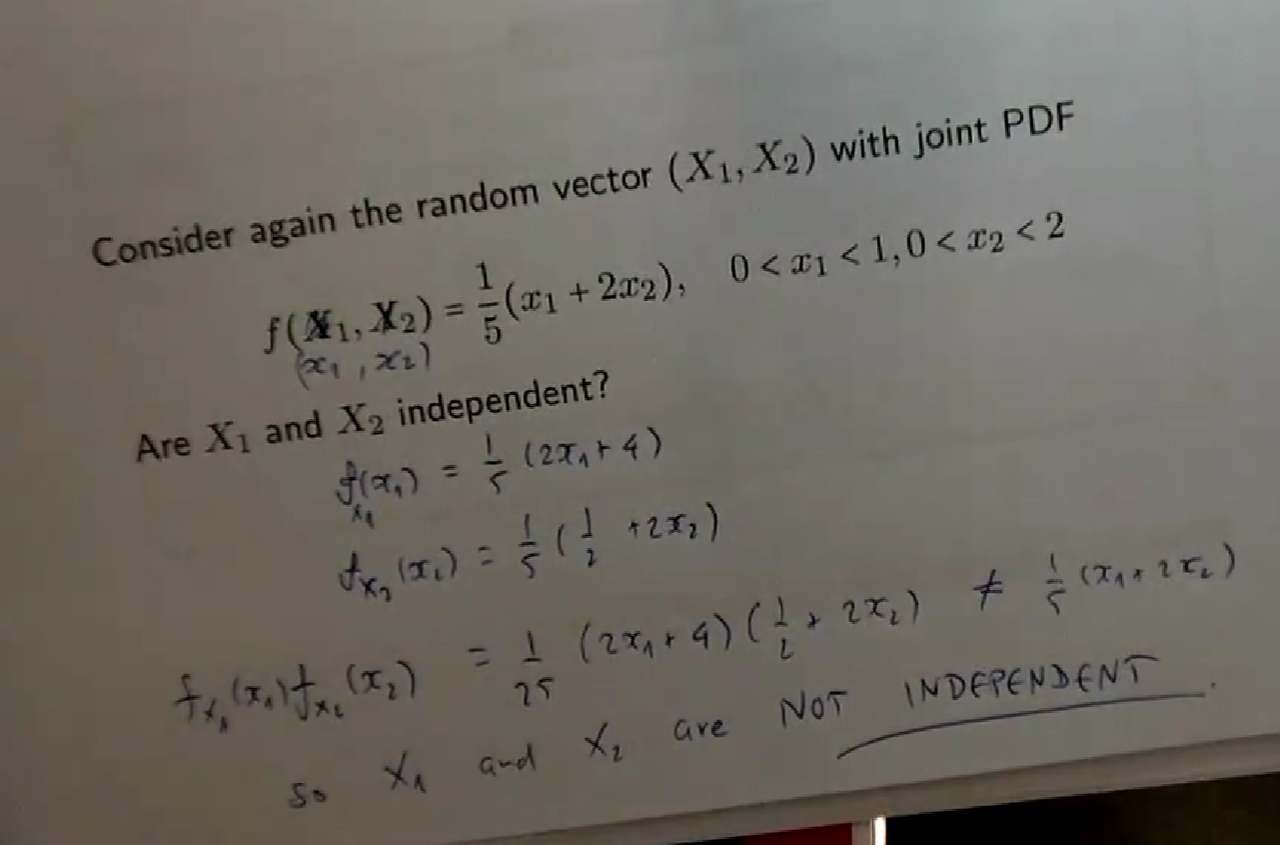 Consider again the random vector (X₁, X₂) with joint PDF
f(X₁, X₂) = 1/5 (x₁ + 2x₂), 0 < x₁ < 1, 0 < x₂ < 2
(x₁, x₂)
Are X₁ and X₂ independent?
f_X₁(x₁) = 1/5 (2x₁ + 4)
f_X₂(x₂) = 1/5 (1/2 + 2x₂)
f_X₁(x₁) f_X₂(x₂) = 1/25 (2x₁ + 4) (1/2 + 2x₂) ≠ 1/5 (x₁ + 2x₂)
so X₁ and X₂ are NOT INDEPENDENT.